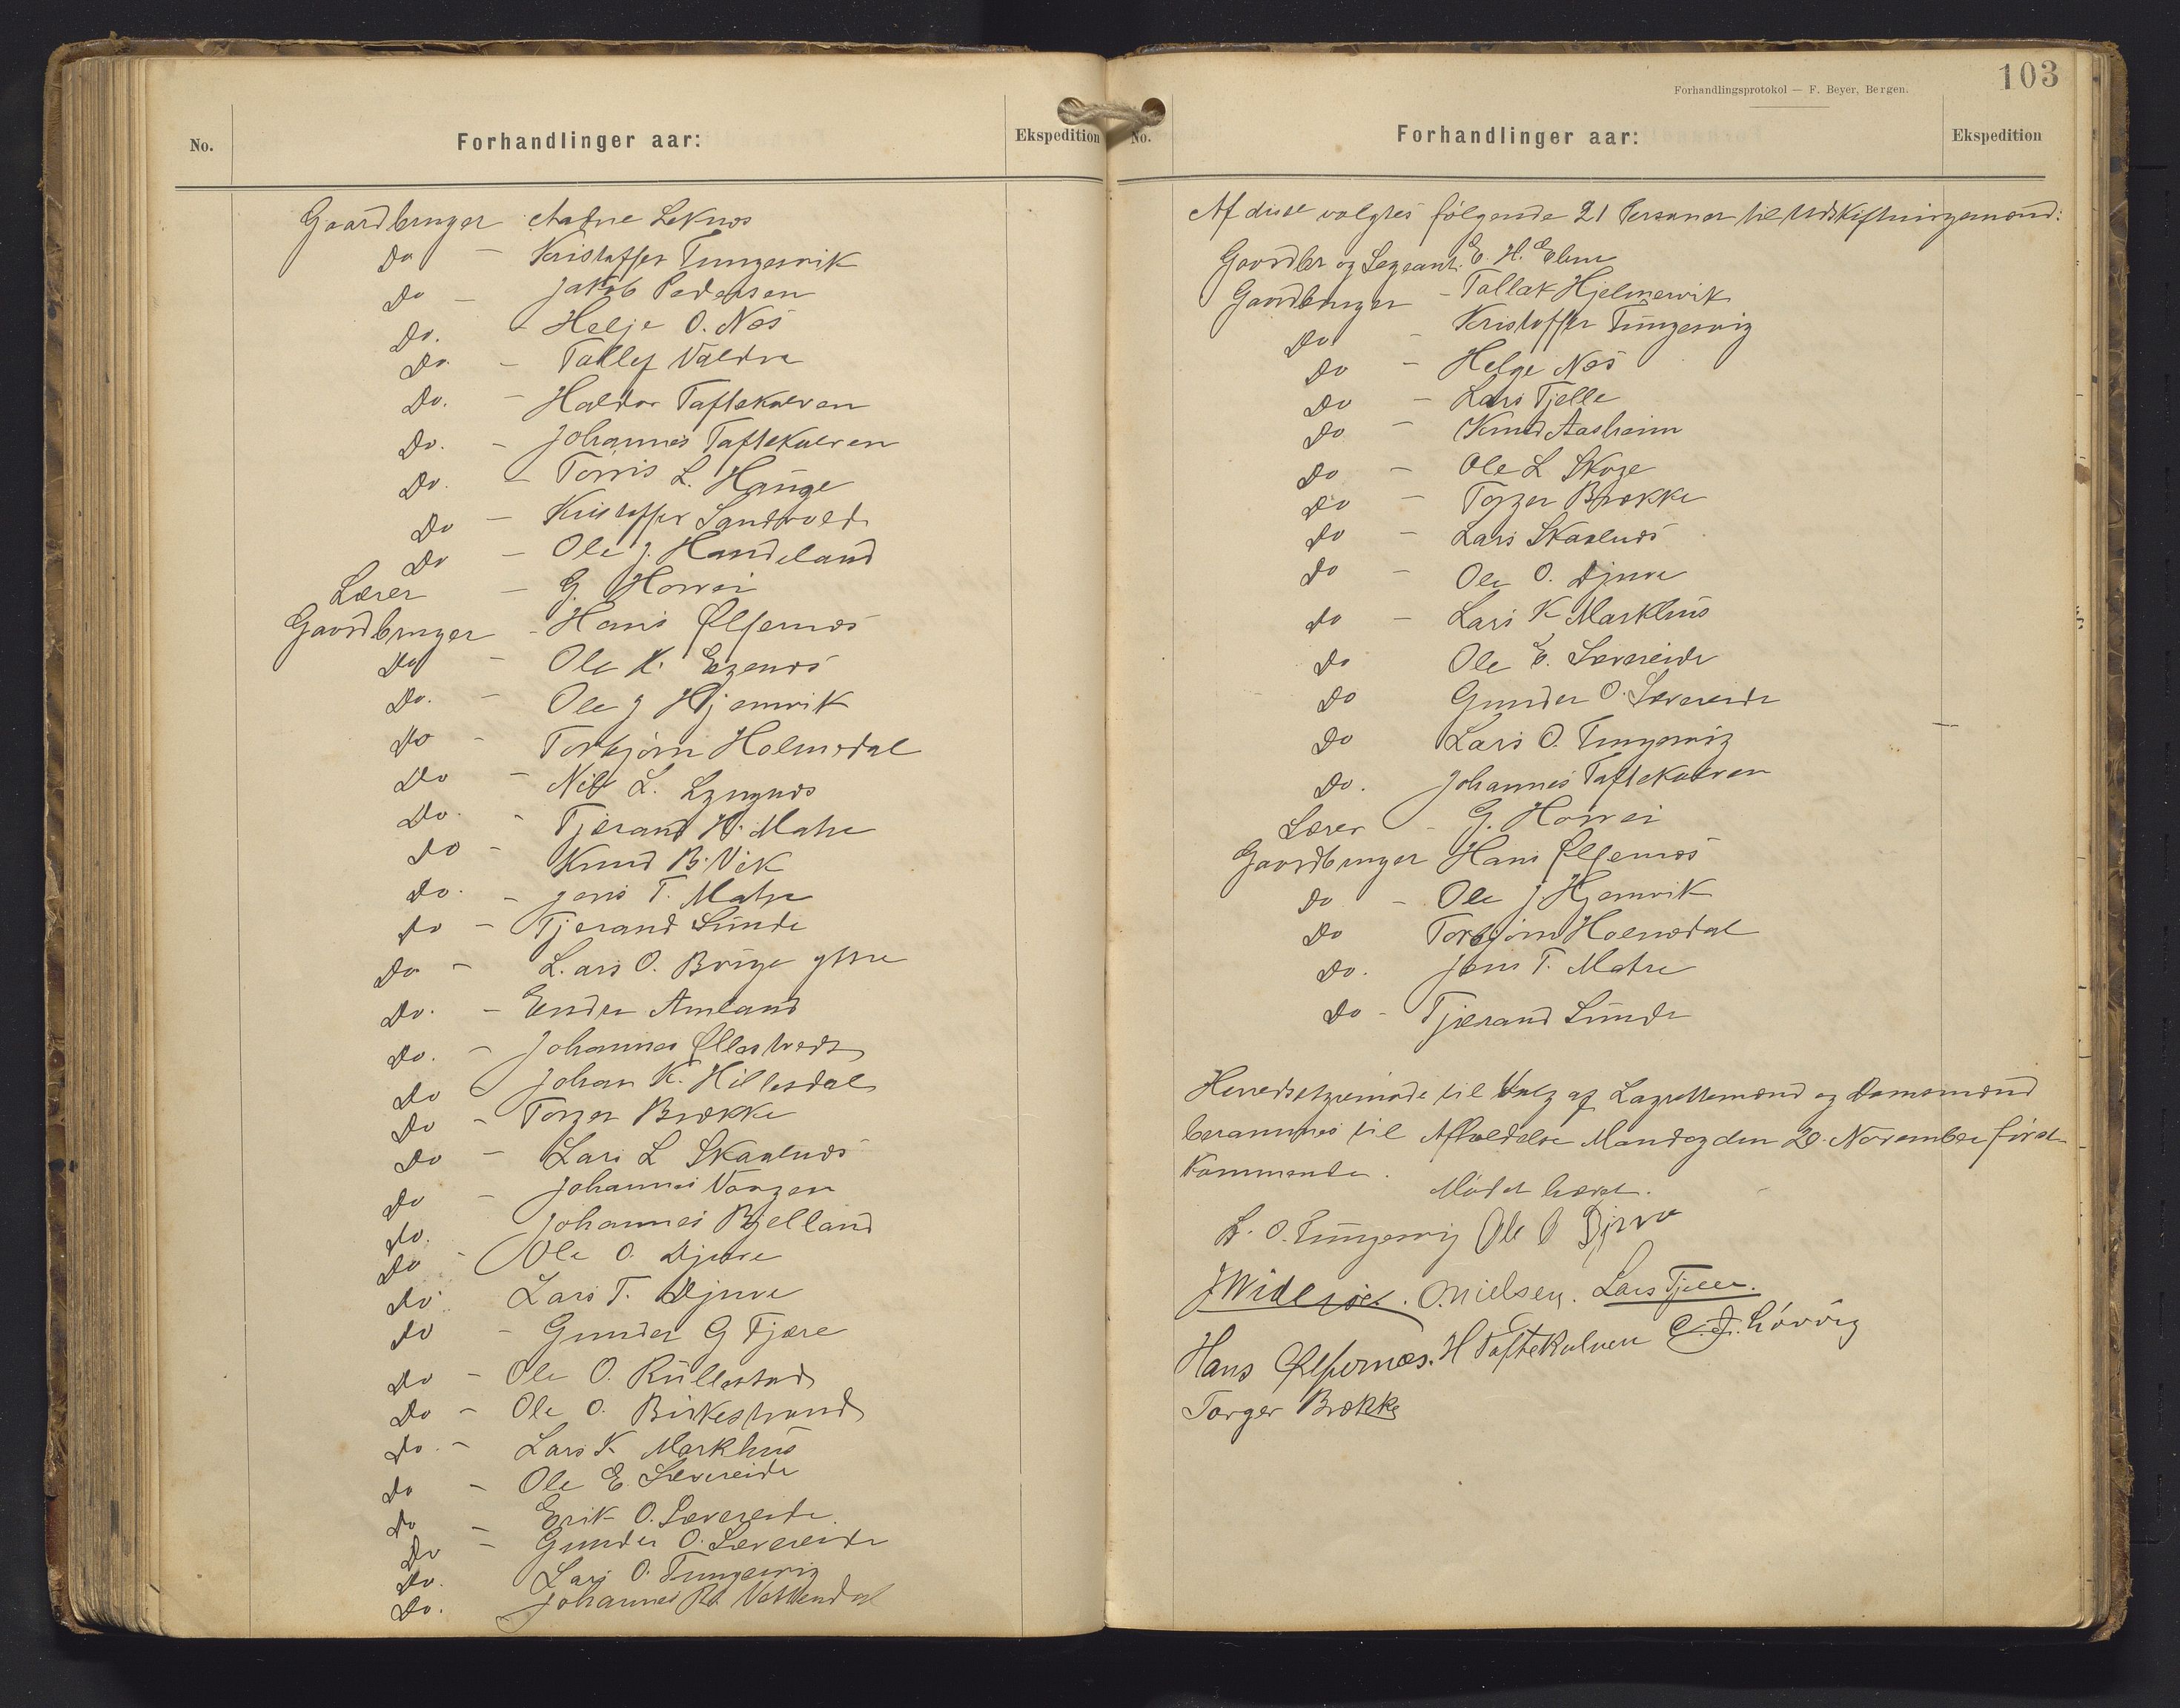 No. Forhandlinger aar: Ekspedition
Gaardbruger Aadne Leknæs
Do - Kristoffer Tungesvik
Do - Jakob Pedersen
Do. - Helje O. Næs
Do - Tallef Valdra
Do. - Haldor Taftekalven
Do. - Johannes Taftekalven
Do. - Torris L. Hauge
Do - Kristoffer Sandvold
Do - Ole J. Handeland
Lærer - G. Horvei
Gaardbruger - Hans Ølfernæs
Do - Ole K. Egenæs
Do. - Ole J Hjemvik
Do - Torbjörn Holmedal
Do - Nils L. Lyngnæs
Do. - Tjerand H. Matre
Do - Knud B. Vik
Do. - Jens T. Matre
Do - Tjerand Sunde
Do - Lars O. Börge ytre
Do. - Endre Amland
Do. - Johannes Øllestvedt
Do Johan K. Hillesdal
Do - Torger Brække
Do - Lars L Skaalnæs
Do - Johannes Vaagen
Do. Johannes Bjelland
Do - Ole O. Djuve
Do. Lars T. Djuve
Do - Gunder G Fjære
Do - Ole O. Rullestad
Do - Ole O. Birkestrand
Do. - Lars K Markhus
Do - Ole E. Sævereide
Do - Erik O. Sævereide.
Do - Gunder O. Sævereide
Do. Lars O. Tungesvig
Do. Johannes Vattendal
103
Forhandlingsprotokol — F. Beyer, Bergen.
No. Forhandlinger aar: Ekspedition
Af disse valgtes følgende 21 Personer til Udskiftningsmænd:
Gaardbr og Sergeant. E. H. Ebne
Gaardbruger - Tallak Hjelmervik
Do - Kristoffer Tungesvig
Do - Helge Næs
Do - Lars Tjelle
Do - Knud Aasheim
Do - Ole L Skoge
Do - Torger Brække
Do - Lars Skaalnæs
Do - Ole O. Djuve
Do - Lars K Markhus
Do Ole E. Sævereide
Do Gunder O. Sævereide
Do Lars O. Tungesvig
Do. Johannes Taftekalven
Lærer - G. Horvei
Gaardbruger Hans Ølfernæs
Do - Ole J. Hjemvik
Do Torbjörn Holmedal
Do. Jens T. Matre
Do - Tjerand Sunde
Herredstyremöde til Valg af Lagrettemænd og Domsmænd
berammes til Afholdelse Mandag den 20. November först
kommende.
Mödet hævet.
L. O. Tungesvig Ole O Djuve
J Widerøe. O. Nielsen. Lars Tjelle.
Hans Ølfernæs. H Taftekalven C. J. Lövvig
Torger Brække